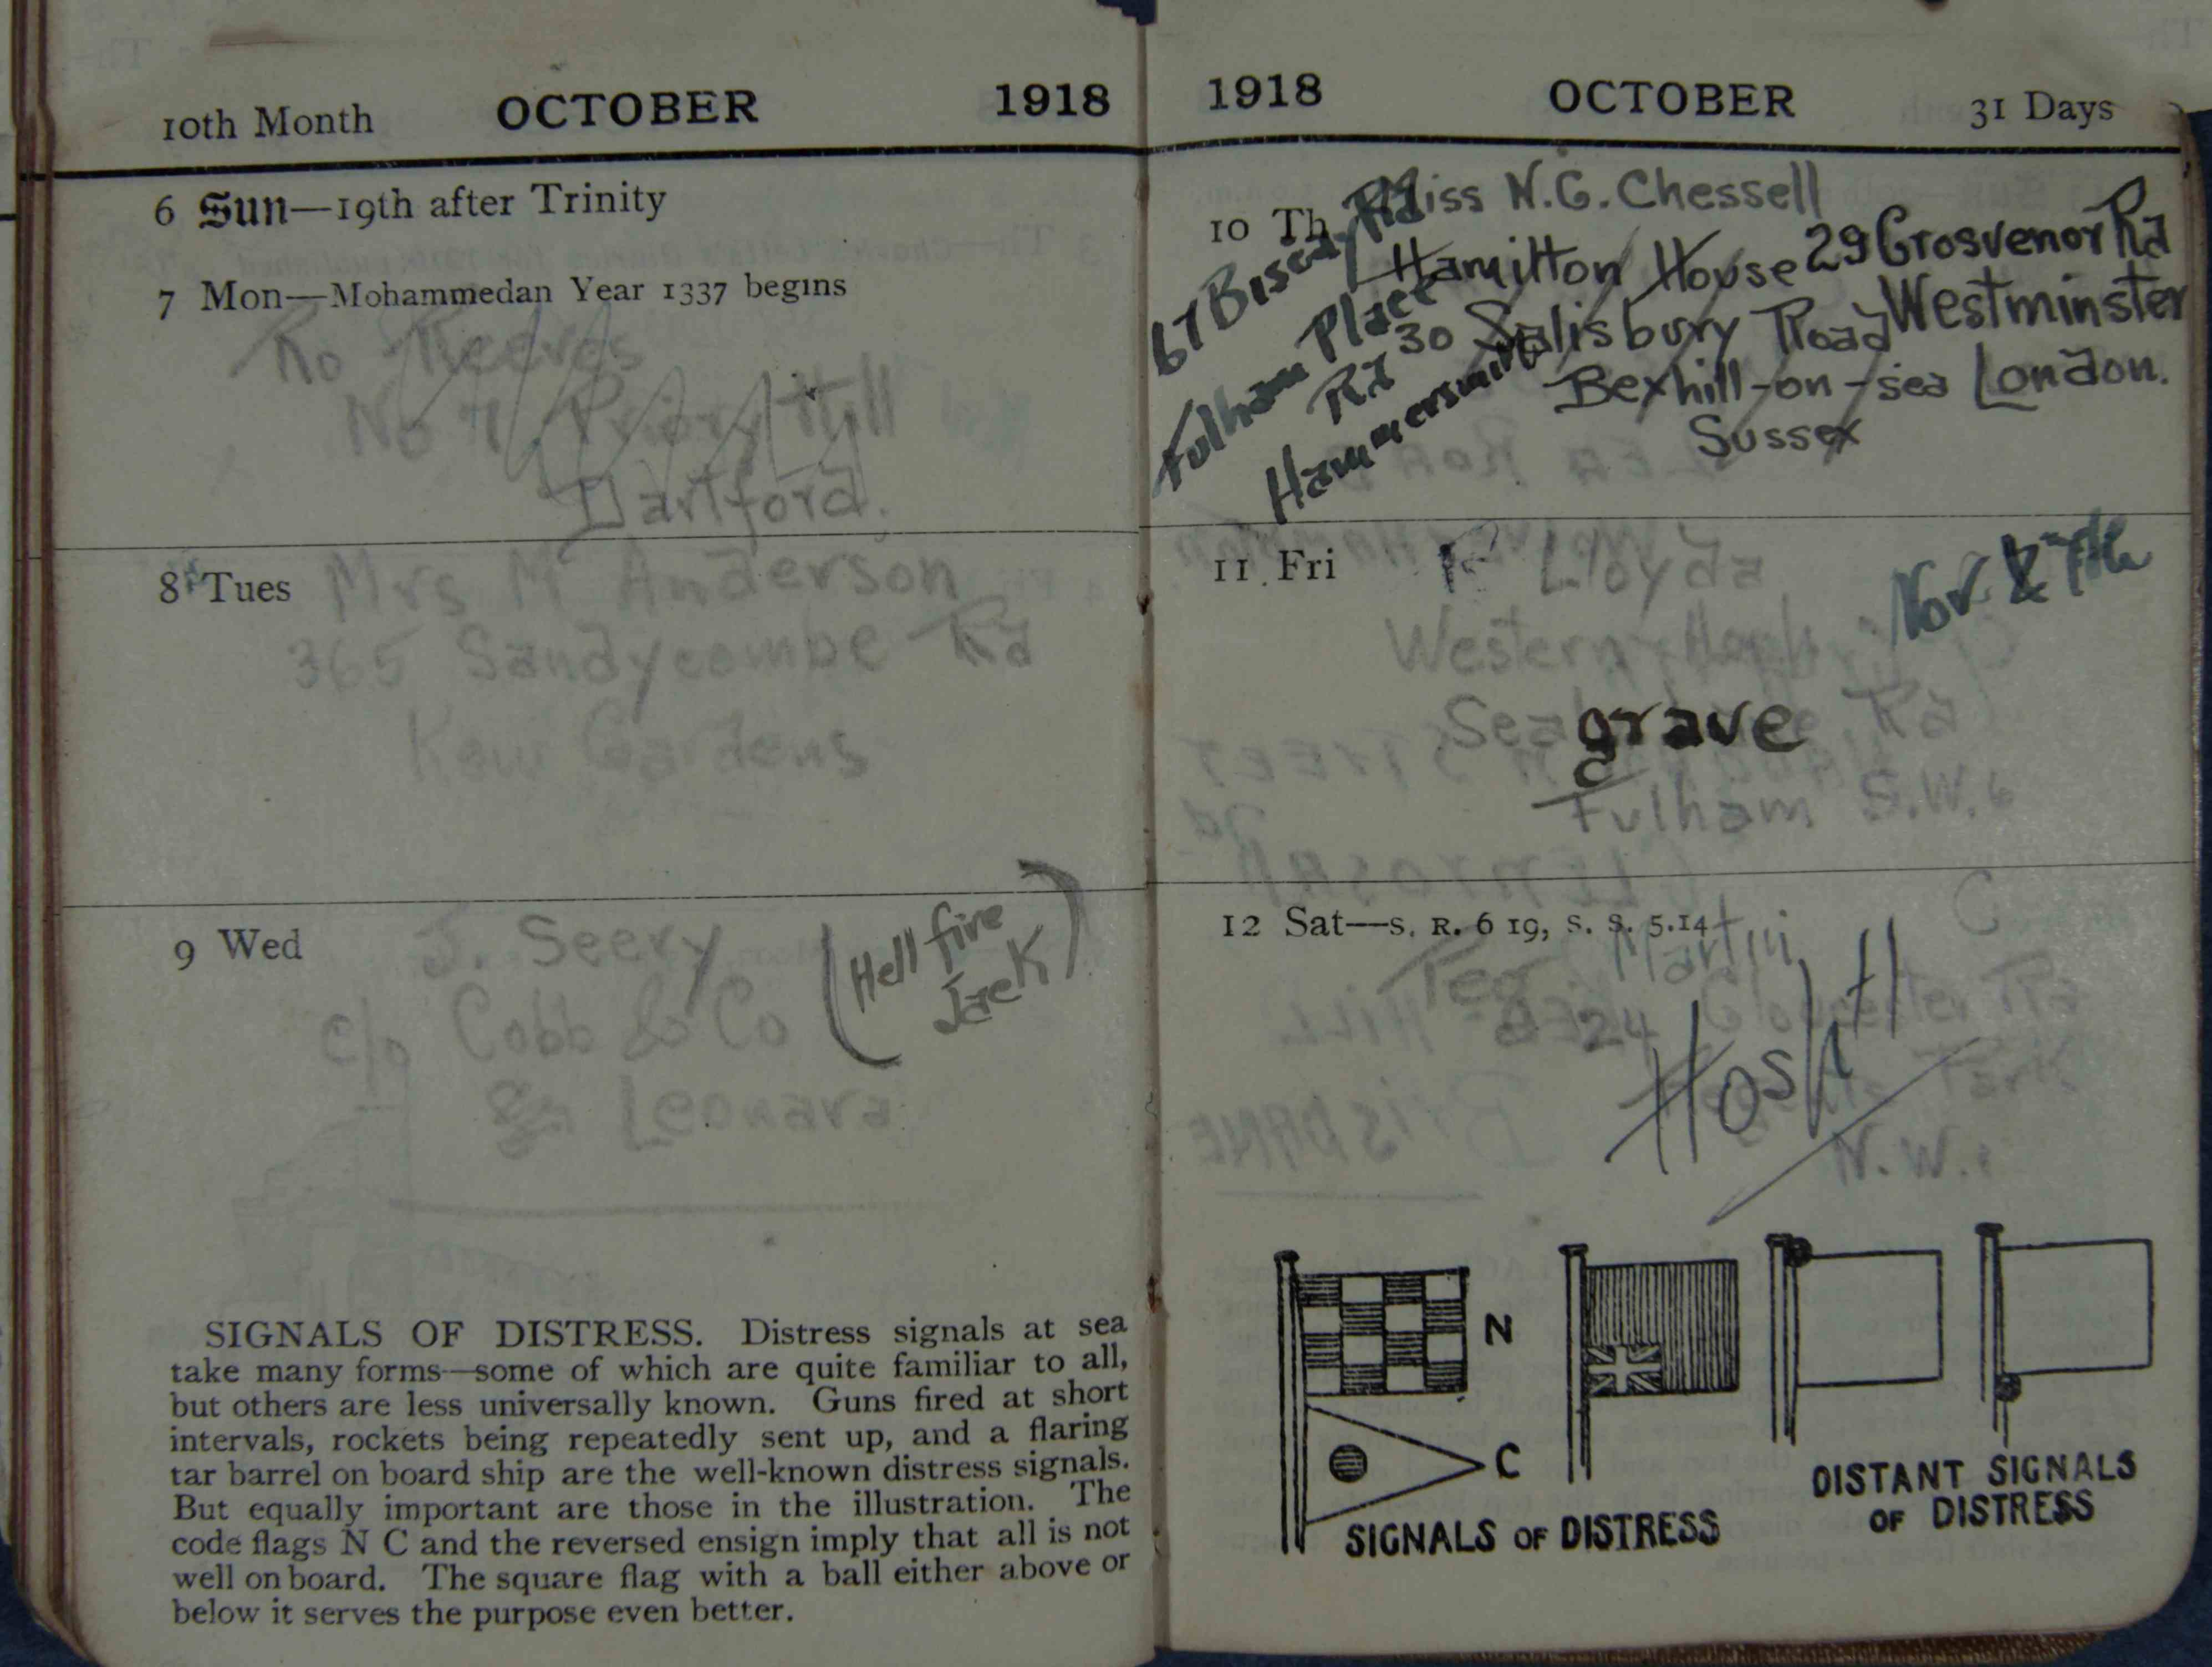 10th Month OCTOBER 1918
6 Sun—19th after Trinity
7 Mon—Mohammedan Year 1337 begins
Ro Reeves
No 7 Priory Hill
Dartford.
8 Tues
Mrs M Anderson
365 Sandycombe Rd
Kew Gardens
9 Wed
J. Seery
c/o Cobb & Co
Leonard
(Hell fire
Jack)
SIGNALS OF DISTRESS. Distress signals at sea
take many forms—some of which are quite familiar to all,
but others are less universally known. Guns fired at short
intervals, rockets being repeatedly sent up, and a flaring
tar barrel on board ship are the well-known distress signals.
But equally important are those in the illustration. The
code flags N C and the reversed ensign imply that all is not
well on board. The square flag with a ball either above or
below it serves the purpose even better.
1918 OCTOBER 31 Days
10 Th
Miss N.G. Chessell
Hamilton House
30 Salisbury Road
Bexhill-on-sea
Sussex
29 Grosvenor Rd
Westminster
London.
67 Biscay Rd
Fulham Place
Rd
Hammersmith
11 Fri
Lloyd
Nov
Western
grave Rd
Fulham S.W.6
12 Sat—S. R. 6 19, S. S. 5.14
Peg Martin
24 Gloucester Rd
Park
N.W.1
N
C
SIGNALS OF DISTRESS
DISTANT SIGNALS
OF DISTRESS